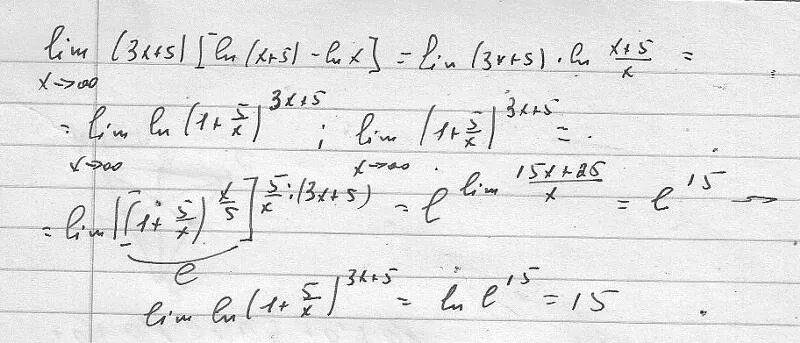 lim (3x+5) [ln(x+5) - ln x] = lim (3x+5) · ln (x+5)/x =
x→∞
= lim ln (1+5/x)^(3x+5) ; lim (1+5/x)^(3x+5) =
x→∞ x→∞
= lim [(1+5/x)^(x/5)]^(5/x·(3x+5)) = e^(lim (15x+25)/x) = e^15 →
e
lim ln (1+5/x)^(3x+5) = ln e^15 = 15